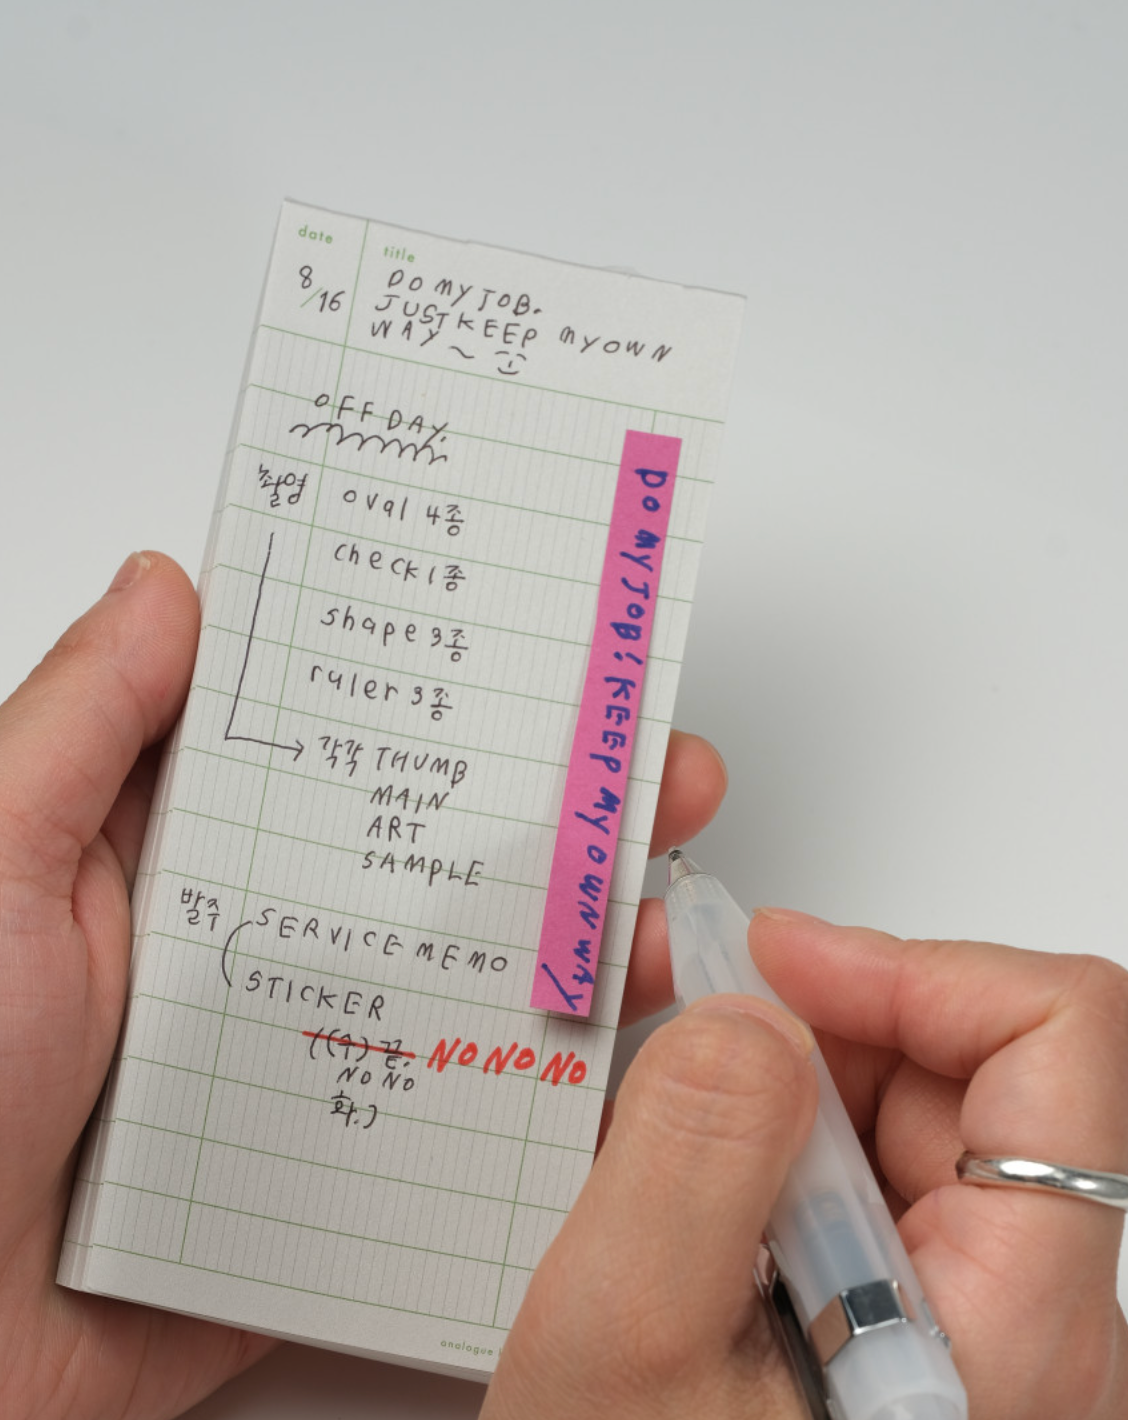 date
title
8/16
DO MY JOB.
JUST KEEP MY OWN
WAY ~
OFF DAY.
촬영 oval 4종
check 1종
shape 3종
ruler 3종
각각 THUMB
MAIN
ART
SAMPLE
발주 SERVICE MEMO
STICKER
((수) 끝. NO NO NO
NO NO
화.)
DO MY JOB! KEEP MY OWN WAY
analogue